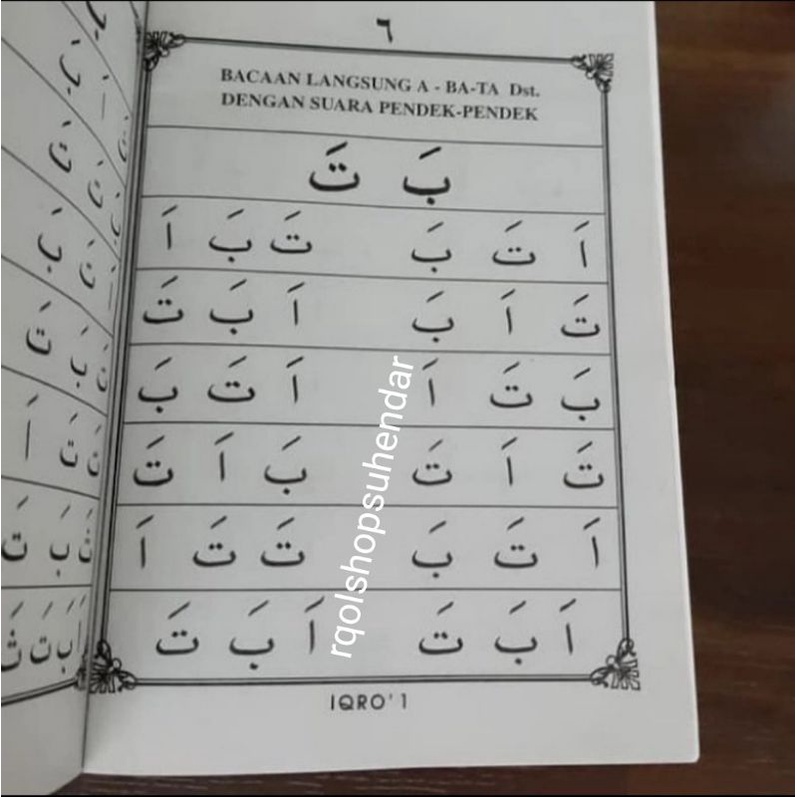 ٦
BACAAN LANGSUNG A - BA-TA Dst.
DENGAN SUARA PENDEK-PENDEK
بَ تَ
اَ تَ بَ تَ بَ اَ
تَ اَ بَ اَ بَ تَ
بَ تَ اَ اَ تَ بَ
تَ اَ تَ بَ اَ تَ
اَ تَ بَ تَ تَ اَ
اَ بَ تَ اَ بَ تَ
IQRO' 1
rqolshopsuhendar